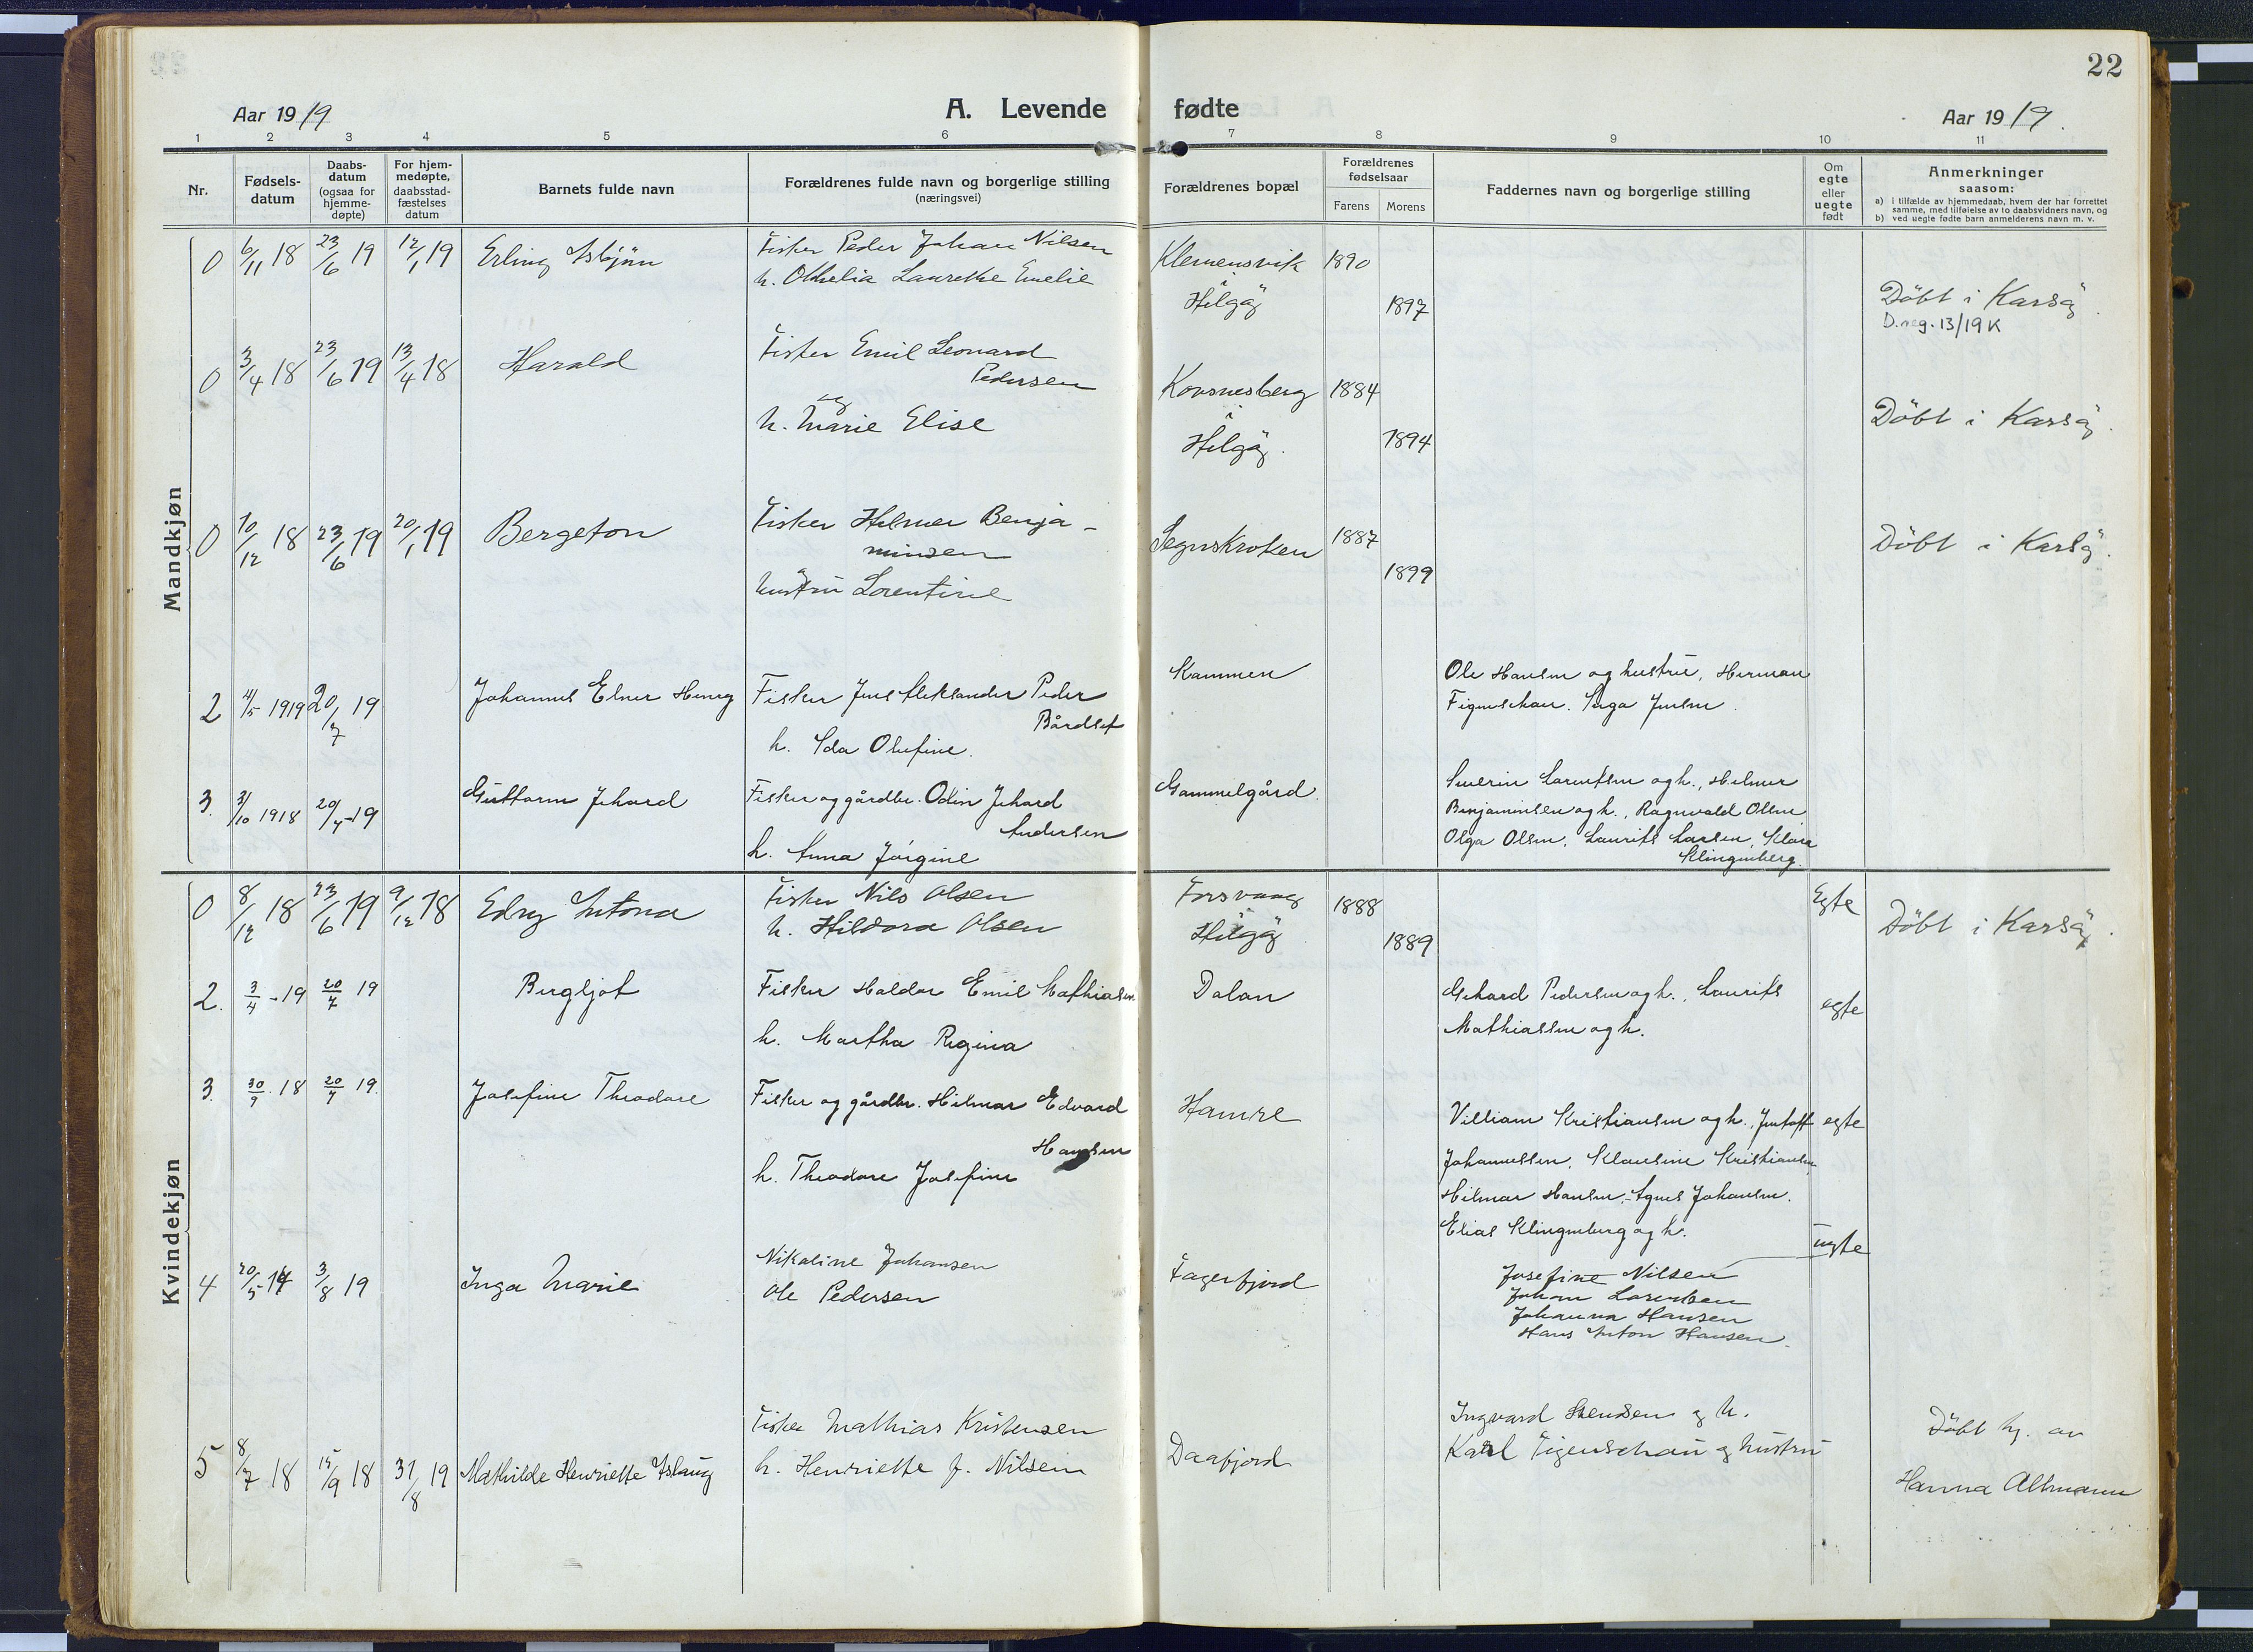 22
Aar 1919
A. Levende fødte
Aar 1919.
1 2 3 4 5 6 7 8 9 10 11
Nr.
Fødsels-
datum
Daabs-
datum
(ogsaa for
hjemme-
døpte)
For hjem-
medøpte,
daabsstad-
fæstelses
datum
Barnets fulde navn
Forældrenes fulde navn og borgerlige stilling
(næringsvei)
Forældrenes bopæl
Forældrenes
fødselsaar
Farens Morens
Faddernes navn og borgerlige stilling
Om
egte
eller
uegte
født
Anmerkninger
saasom:
a) i tilfælde av hjemmedaab, hvem der har forrettet
samme, med tilføielse av to daabsvidners navn, og
b) ved uegte fødte barn anmelderens navn m. v.
Mandkjøn
0 6/11 18 23/6 19 12/1 19 Erling Asbjörn
Fisker Peder Johan Nilsen
h. Othelia Laurethe Emelie
Klemensvik 1890
Helgöy 1897
Döbt i Karsöy.
D.reg. 13/19 K
0 3/4 18 23/6 19 13/4 18 Harald
Fisker Emil Leonard
Pedersen
og
h. Marie Elise
Korsnesberg 1884
i
Helgöy. 1894
Döbt i Karsöy.
0 10/12 18 23/6 19 20/1 19 Bergeton
Fisker Helmer Benja-
minsen
hustru Lorentine
Segnskroken 1887
1899
Döbt i Karsöy.
2 4/5 1919 20/7 19 Johannes Elner Henry
Fisker Jens Aleksander Peder
Bårdset
h. Ida Olufine.
Kammen
Ole Hansen og hustru, Herman
Figenschau. Inga Jensen.
3. 3/10 1918 20/7-19 Guttorm Jehard
Fisker og gårdbr. Odin Jehard
Andersen
h. Anna Jörgine
Gammelgård.
Severin Lorentsen og h., Helmer
Benjaminsen og h., Ragnvald Olsen
Olga Olsen, Laurits Larsen, Klara
Klingenberg.
Kvindekjøn
0 8/12 18 23/6 19 9/12 18 Edny Antona
Fisker Nils Olsen
h. Hildora Olsen
Forsvaag 1888
Helgöy 1889
Egte
Döbt i Karsöy.
2. 3/4-19 20/7 19 Bergljot
Fisker Haldor Emil Mathiasen
h. Martha Regina
Dalan
Gehard Pedersen og h., Laurits
Mathiassen og h.
egte
3. 30/9. 18 20/7 19. Josefine Theodore
Fisker og gårdbr. Hilmar Edvard
Hansen
h. Theodore Josefine
Hamre
Villiam Kristiansen og h., Jentoft
Johannessen, Klausine Kristiansen,
Hilmar Hansen, Agnes Johansen.
Elias Klingenberg og h.
egte
4 20/5 3/8 19 Inga Marie
Nikoline Johansen
Ole Pedersen
Fagerfjord
Josefine Nilsen
Johan Lorentsen
Johanna Hansen
Hans Anton Hansen.
uegte
5 8/7 18 15/9 18 31/8 19 Mathilde Henriette Aslaug
Fisker Mathias Kristensen
h. Henriette f. Nilsen
Daafjord
Ingvard Svendsen og h.
Karl Figenschau og hustru
Döbt hj. av
Hanna Altmann